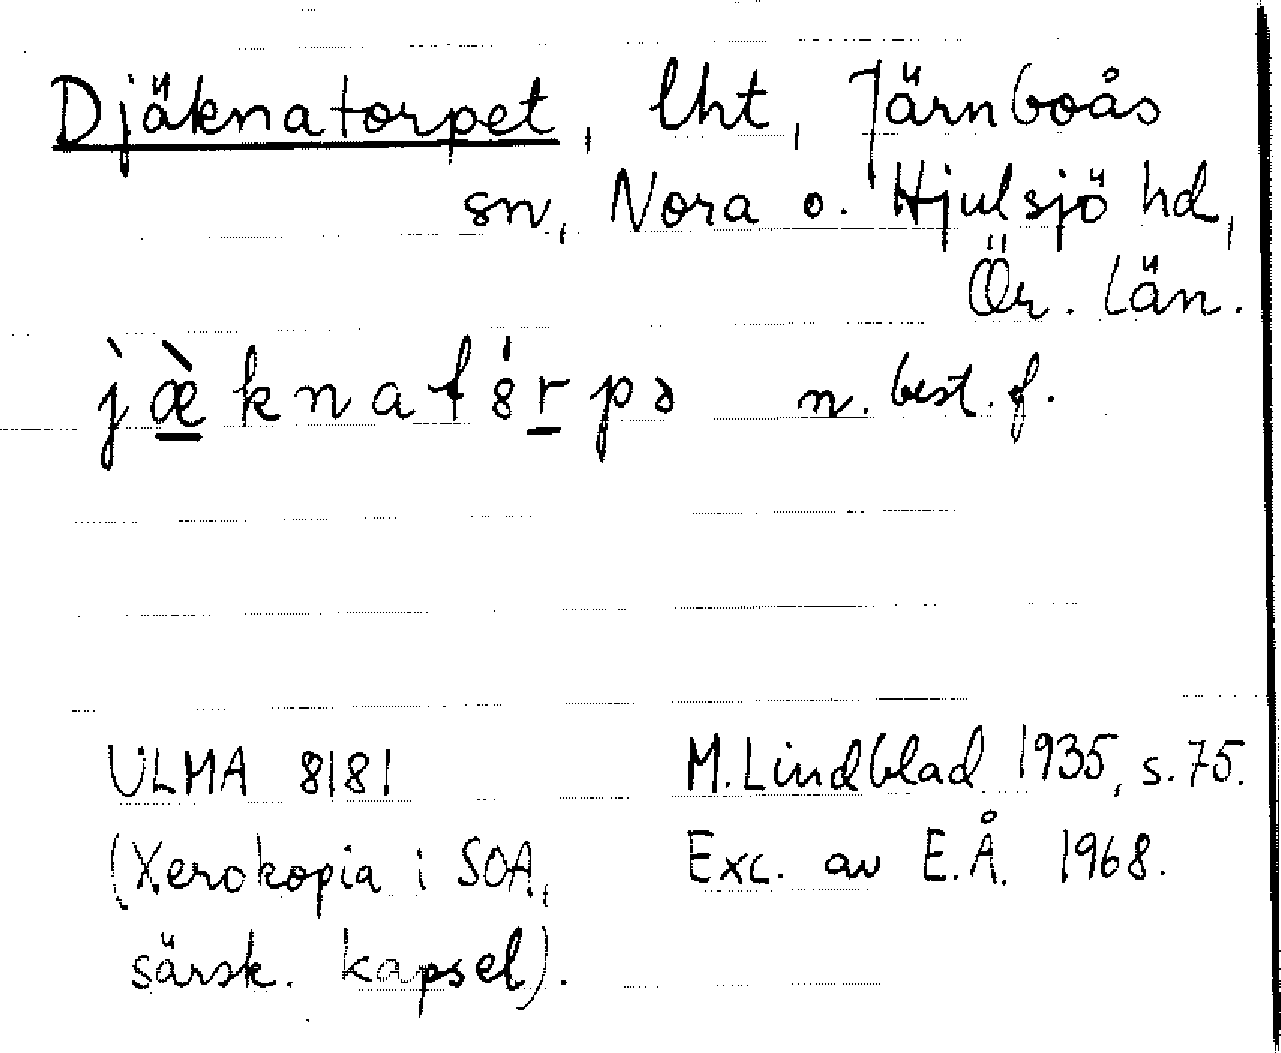 Djäknatorpet, lht, Järnboås
sn, Nora o. Hjulsjö hd,
Ör. län.
jæ̀knatórpə n. best. f.
ULMA 8181 M. Lindblad 1935, s. 75.
(Xerokopia i SOA, Exc. av E.Å. 1968.
särsk. kapsel).